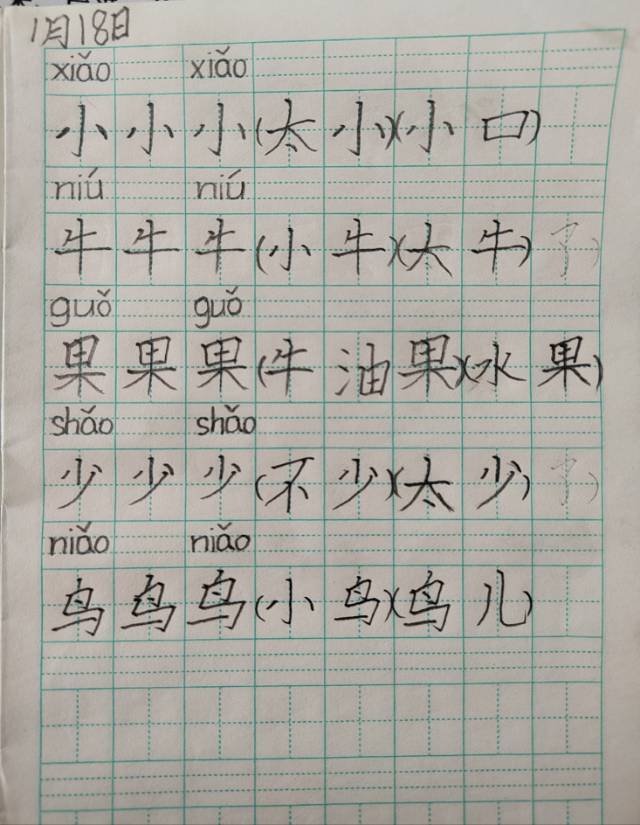 1月18日
xiǎo xiǎo
小小小(太小)(小口)
niú niú
牛牛牛(小牛)(大牛)
guǒ guǒ
果果果(牛油果)(水果)
shǎo shǎo
少少少(不少)(太少)
niǎo niǎo
鸟鸟鸟(小鸟)(鸟儿)